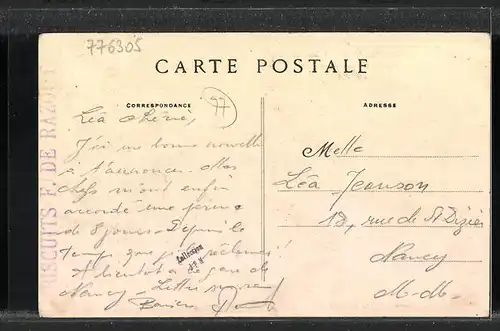 776305
CARTE POSTALE
CORRESPONDANCE
77
ADRESSE
BISCUITS F. DE RA
Léa chérie,
J'ai une bonne nouvelle
à t'annoncer. Mes
chefs m'ont enfin
accordé une perme
de 8 jours. Depuis le
temps que je la
A bientôt à la gare de
Nancy. Lettre
Collection
Melle
Léa Jeanson
18, rue de St Dizier
Nancy
M.-M.